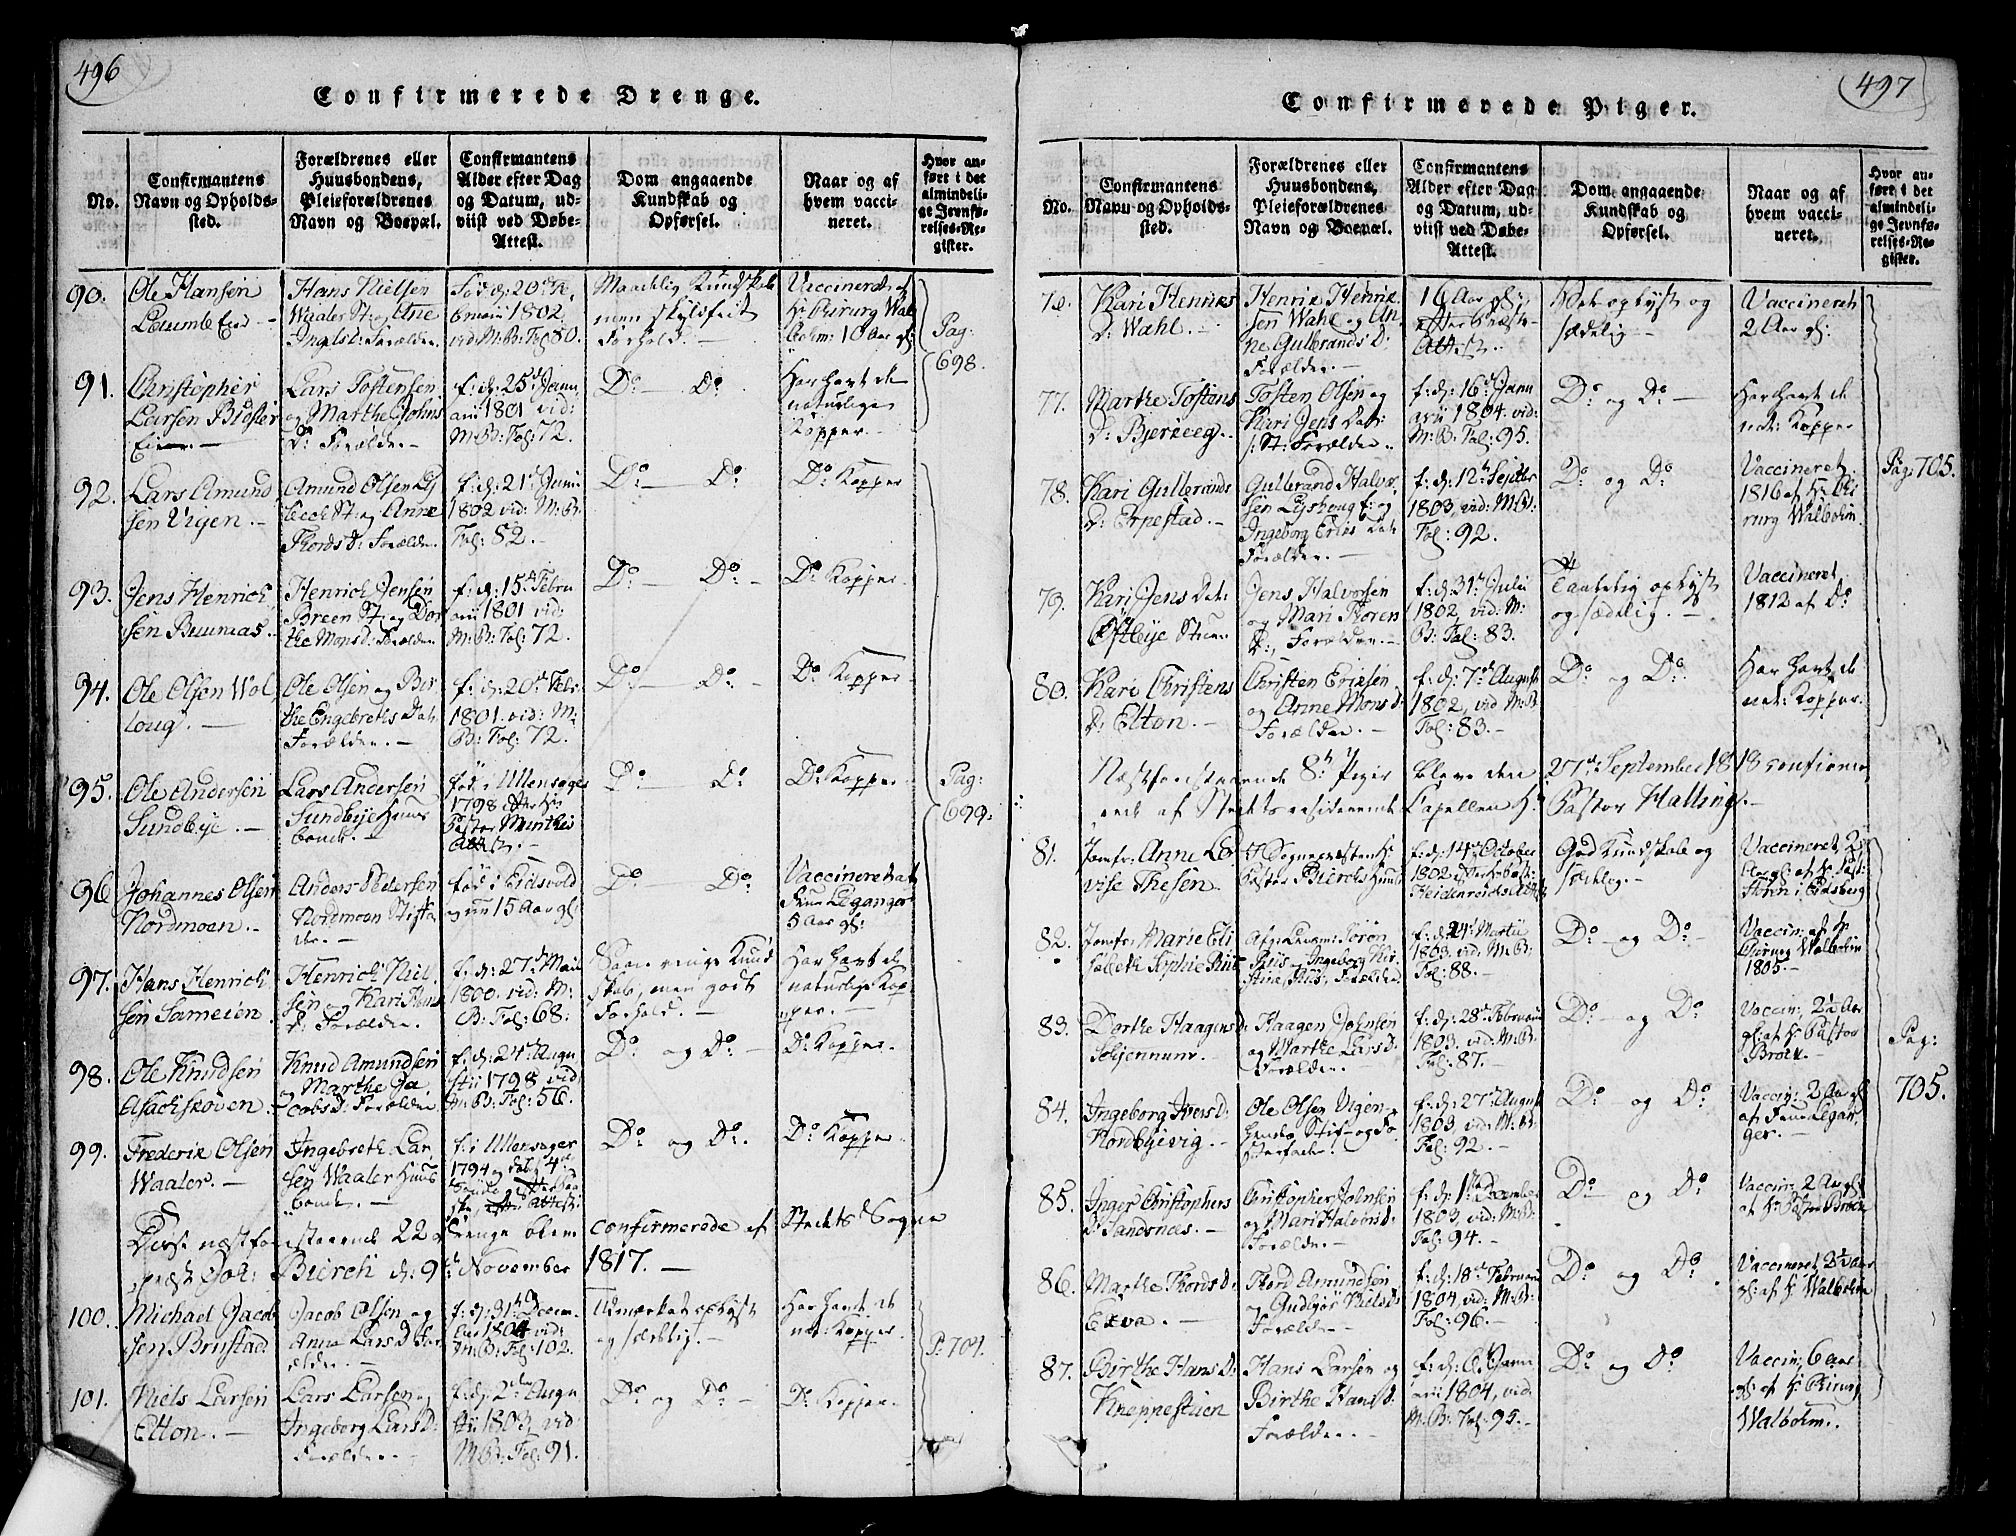 496
Confirmerede Drenge.
No.
Confirmantens
Navn og Opholds-
sted.
Forældrenes eller
Huusbondens,
Pleieforældrenes
Navn og Boepæl.
Confirmantens
Alder efter Dag
og Datum, ud-
viist ved Døbe-
Attest.
Dom angaaende
Kundskab og
Opførsel.
Naar og af
hvem vacci-
neret.
Hvor an-
ført i det
almindeli-
ge Jevnfø-
relses-Re-
gister.
90.
Ole Hansen
Hans Nielsen
Waaler St: og Ane
Ingelsd: Forældre
Fød d: 20de
1802.
vid: M: B: Fol: 80.
Maadelig Kundskab
men skyldfrit
Forhold. —
Vaccineret af
Hr Chirurg Wal
bohm: 10 Aar gl:
Pag:
698.
91.
Christopher
Larsen
Eier —
Lars Tostensen
og Marthe Johns
D: Forældre —
f: d: 25de Janu
arii 1801 vid:
M: B: Fol: 72.
Do — Do
Har havt de
naturlige
Kopper. —
92.
Lars Amund
sen Vigen. —
Amund Olsen
St: og Anne
Thordsd: Forældre
f: d: 21de Junii
1802 vid: M: B:
Fol: 82. —
Do — Do
Do Kopper
93.
Jens Henrich
sen
Henrich Jensen
Breen St: og Dor
the Monsd: Forældre
f: d: 15de Febru
arii 1801 vid:
M: B: Fol: 72.
Do — Do —
Do Kopper.
94.
Ole Olsen Wol
loug. —
Ole Olsen og Bir
the Engebreths Dat:
Forældre. —
f: d: 20de Febr
1801. vid: M:
B: Fol: 72.
Do — Do —
Do Kopper.
95.
Ole Andersen
Sundbye. —
Lars Andersen
Sundbye Huus
bonde. —
fød i Ullensager
1798 efter Hr
Pastor
Attest. —
Do — Do
Do Kopper.
Pag:
699.
96
Johannes Olsen
Nordmoen. —
Anders Pedersen
Nordmoen Stiffa
der. —
fød i Eidsvold
og nu 15 Aar gl:
Do — Do
Vaccineret af
Frue Leganger
5 Aar gl:
97.
Hans Henrich
sen
Henrich Niel
sen og Kari Hans
D: Forældre.
f: d: 27de Maii
1800. vid: M:
B: Fol: 68.
Saare ringe Kund
skab, men godt
Forhold. —
Har havt de
naturlige Kop
per. —
98.
Ole Knudsen
Knud Amundsen
og Marthe Ja
cobsd: Forældre
f: d: 24de Augu
stii 1798 vid
M: B: Fol: 56.
Do og Do —
Do Kopper.
99.
Frederik Olsen
Waaler. —
Ingebreth Lar
sen Waaler Huus
bonde. —
f: i Ullensager
1794
Attest:
Do og Do.
Do Kopper
Disse næstforestaaende 22 Drenge bleve confirmerede af Stedets Sogne
præst Joh: Bierch d: 9de November 1817. —
100.
Michael Jacob
sen Brustad
Jacob Olsen og
Anne Lars D: For
ældre. —
f: d: 31te Decem
ber 1804 vid:
M: B: Fol: 102.
Udmærket oplyst
og sædelig. —
Har havt de
nat: Kopper.
P: 701.
101.
Niels Larsen
Elton. —
Lars Larsen og
Ingeborg Lars D:
Forældre. —
f: d: 2den Augu
stii 1803, vid:
M: B: Fol: 91.
Do og Do —
Do Kopper.
497
Confirmerede Piger.
No.
Confirmantens
Navn og Opholds-
sted.
Forældrenes eller
Huusbondens,
Pleieforældrenes
Navn og Boepæl.
Confirmantens
Alder efter Dag
og Datum, ud-
viist ved Døbe-
Attest.
Dom angaaende
Kundskab og
Opførsel.
Naar og af
hvem vacci-
neret.
Hvor an-
ført i det
almindeli-
ge Jevnfø-
relses-Re-
gister.
76.
Kari Henriks
D: Wahl. —
Henrik Henrik
sen Wahl og An
ne Gulbrands D:
Forældre. —
16 Aar gl:
efter Præste
Attest. —
oplyst og
sædelig —
Vaccineret
2 Aar gl:
77.
Marthe Tostens
D:
Tosten Olsen og
Kari Jens Dat:
St: Forældre.
f: d: 16de Janu
arii 1804. vid:
M: B: Fol: 95.
Do og Do —
Har havt de
nat: Kopper
Pag: 705.
78.
Kari Gulbrands
D: Erpestad. —
Gulbrand Halvor
sen og
Ingeborg Eriks Dat
Forældre. —
f: d: 12te Septbr
1803, vid: M: B:
Fol: 92.
Do og Do
Vaccineret
1816 af Hr Chi
rurg Walbohm.
79.
Kari Jens Dat:
Jens Halvorsen
og Mari Thoren
D:, Forældre. —
f: d: 31te Julii
1802, vid: M:
B: Fol: 83.
Taalelig oplyst
og sædelig. —
Vaccineret
1812 af Do
80.
Kari Christens
D: Elton. —
Christen Eriksen
og Anne Monsd:
Forældre. —
f: d: 7de August
1802, vid M: B:
Fol: 83. —
Do og Do.
Har havt de
nat: Kopper.
Næstforestaaende 8te Piger bleve den 27de September 1818 confirme
rede af Stedets residerende Capellan Hr Pastor Halling. —
81.
Jomfr: Anne Lo
vise Thesen.
Sognepræsten Hr
Pastor Bierchs Huus
f: d: 14de October
1802 efter Hr Past:
Attest
God Kundskab og
sædelig. —
Vaccineret, 2
Aar gl: af Hr Past:
82.
Jomfr: Marie Eli
sabeth Sophie Riis
Afg: Søren
Riis og Ingeborg Kir
stine Riis, Forældre
f: d: 24de Martii
1803. vid: M: B:
Fol: 88. —
Do og Do —
Vaccin: af Hr
Chirurg Walbohm
1805. —
83.
Dorthe Haagens D:
Haagen Johnsen
og Marthe Lars D:
Forældre. —
f: d: 28de Februarii
1803. vid: M: B:
Fol: 87. —
Do — og Do
Vaccin: 2½ Aar
gl: af Hr Pastor
Brock. —
Pag:
705.
84.
Ingeborg Iversd:
Nordbyevig. —
Ole Olsen Vigen
hendes Stif- og Fo
sterfader. —
f: d: 27de August
1803, vid: M: B:
Fol: 92. —
Do og Do
Vaccin: 2 Aar gl:
af Frue Legan
ger. —
85.
Inger Christophers
D: Sandsnæs. —
Christopher Johnsen
og Mari Halvorsd:
Forældre. —
f: d: 1ste December
1803, vid: M: B:
Fol: 94. —
Do — og Do
Vaccin: 2 Aar gl:
af Hr Pastor Brock
86.
Marthe Thords D:
Thord Amundsen
og Gudbjør Nielsd:
Forældre —
f: d: 18de Februarii
1804, vid: M: B:
Fol: 96. —
Do og Do.
Vaccineret 2½ Aar
gl: af Hr Walbohm
87.
Birthe Hans D:
Kneppestuen
Hans Larsen og
Birthe Hansd:
Forældre. —
f: d: 6te Janu
arii 1804, vid:
M: B: Fol: 95. —
Do og Do.
Vaccin: 6 Aar
gl: af Hr Chirurg
Walbohm.